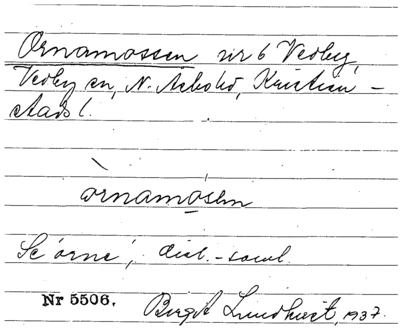 Ornamossen nr 6 Vedby,
Vedby sn, N. Åsbohd, Kristian-
stads l.
ornamosen
Se 'orne', dial.-saml.
Nr 5506. Birgit Lundkvist, 1937.